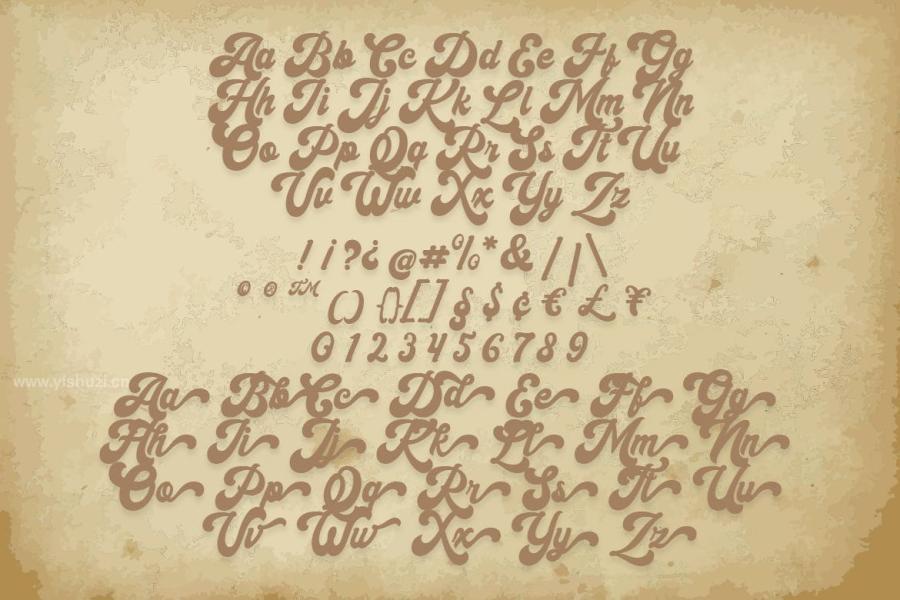 Aa Bb Cc Dd Ee Ff Gg
Hh Ii Jj Kk Ll Mm Nn
Oo Pp Qq Rr Ss Tt Uu
Vv Ww Xx Yy Zz
! ¡ ? ¿ @ # % * & / | \
© ® ™ () {} [] § $ ¢ € £ ¥
0 1 2 3 4 5 6 7 8 9
www.yishuzi.cn
Aa Bb Cc Dd Ee Ff Gg
Hh Ii Jj Kk Ll Mm Nn
Oo Pp Qq Rr Ss Tt Uu
Vv Ww Xx Yy Zz